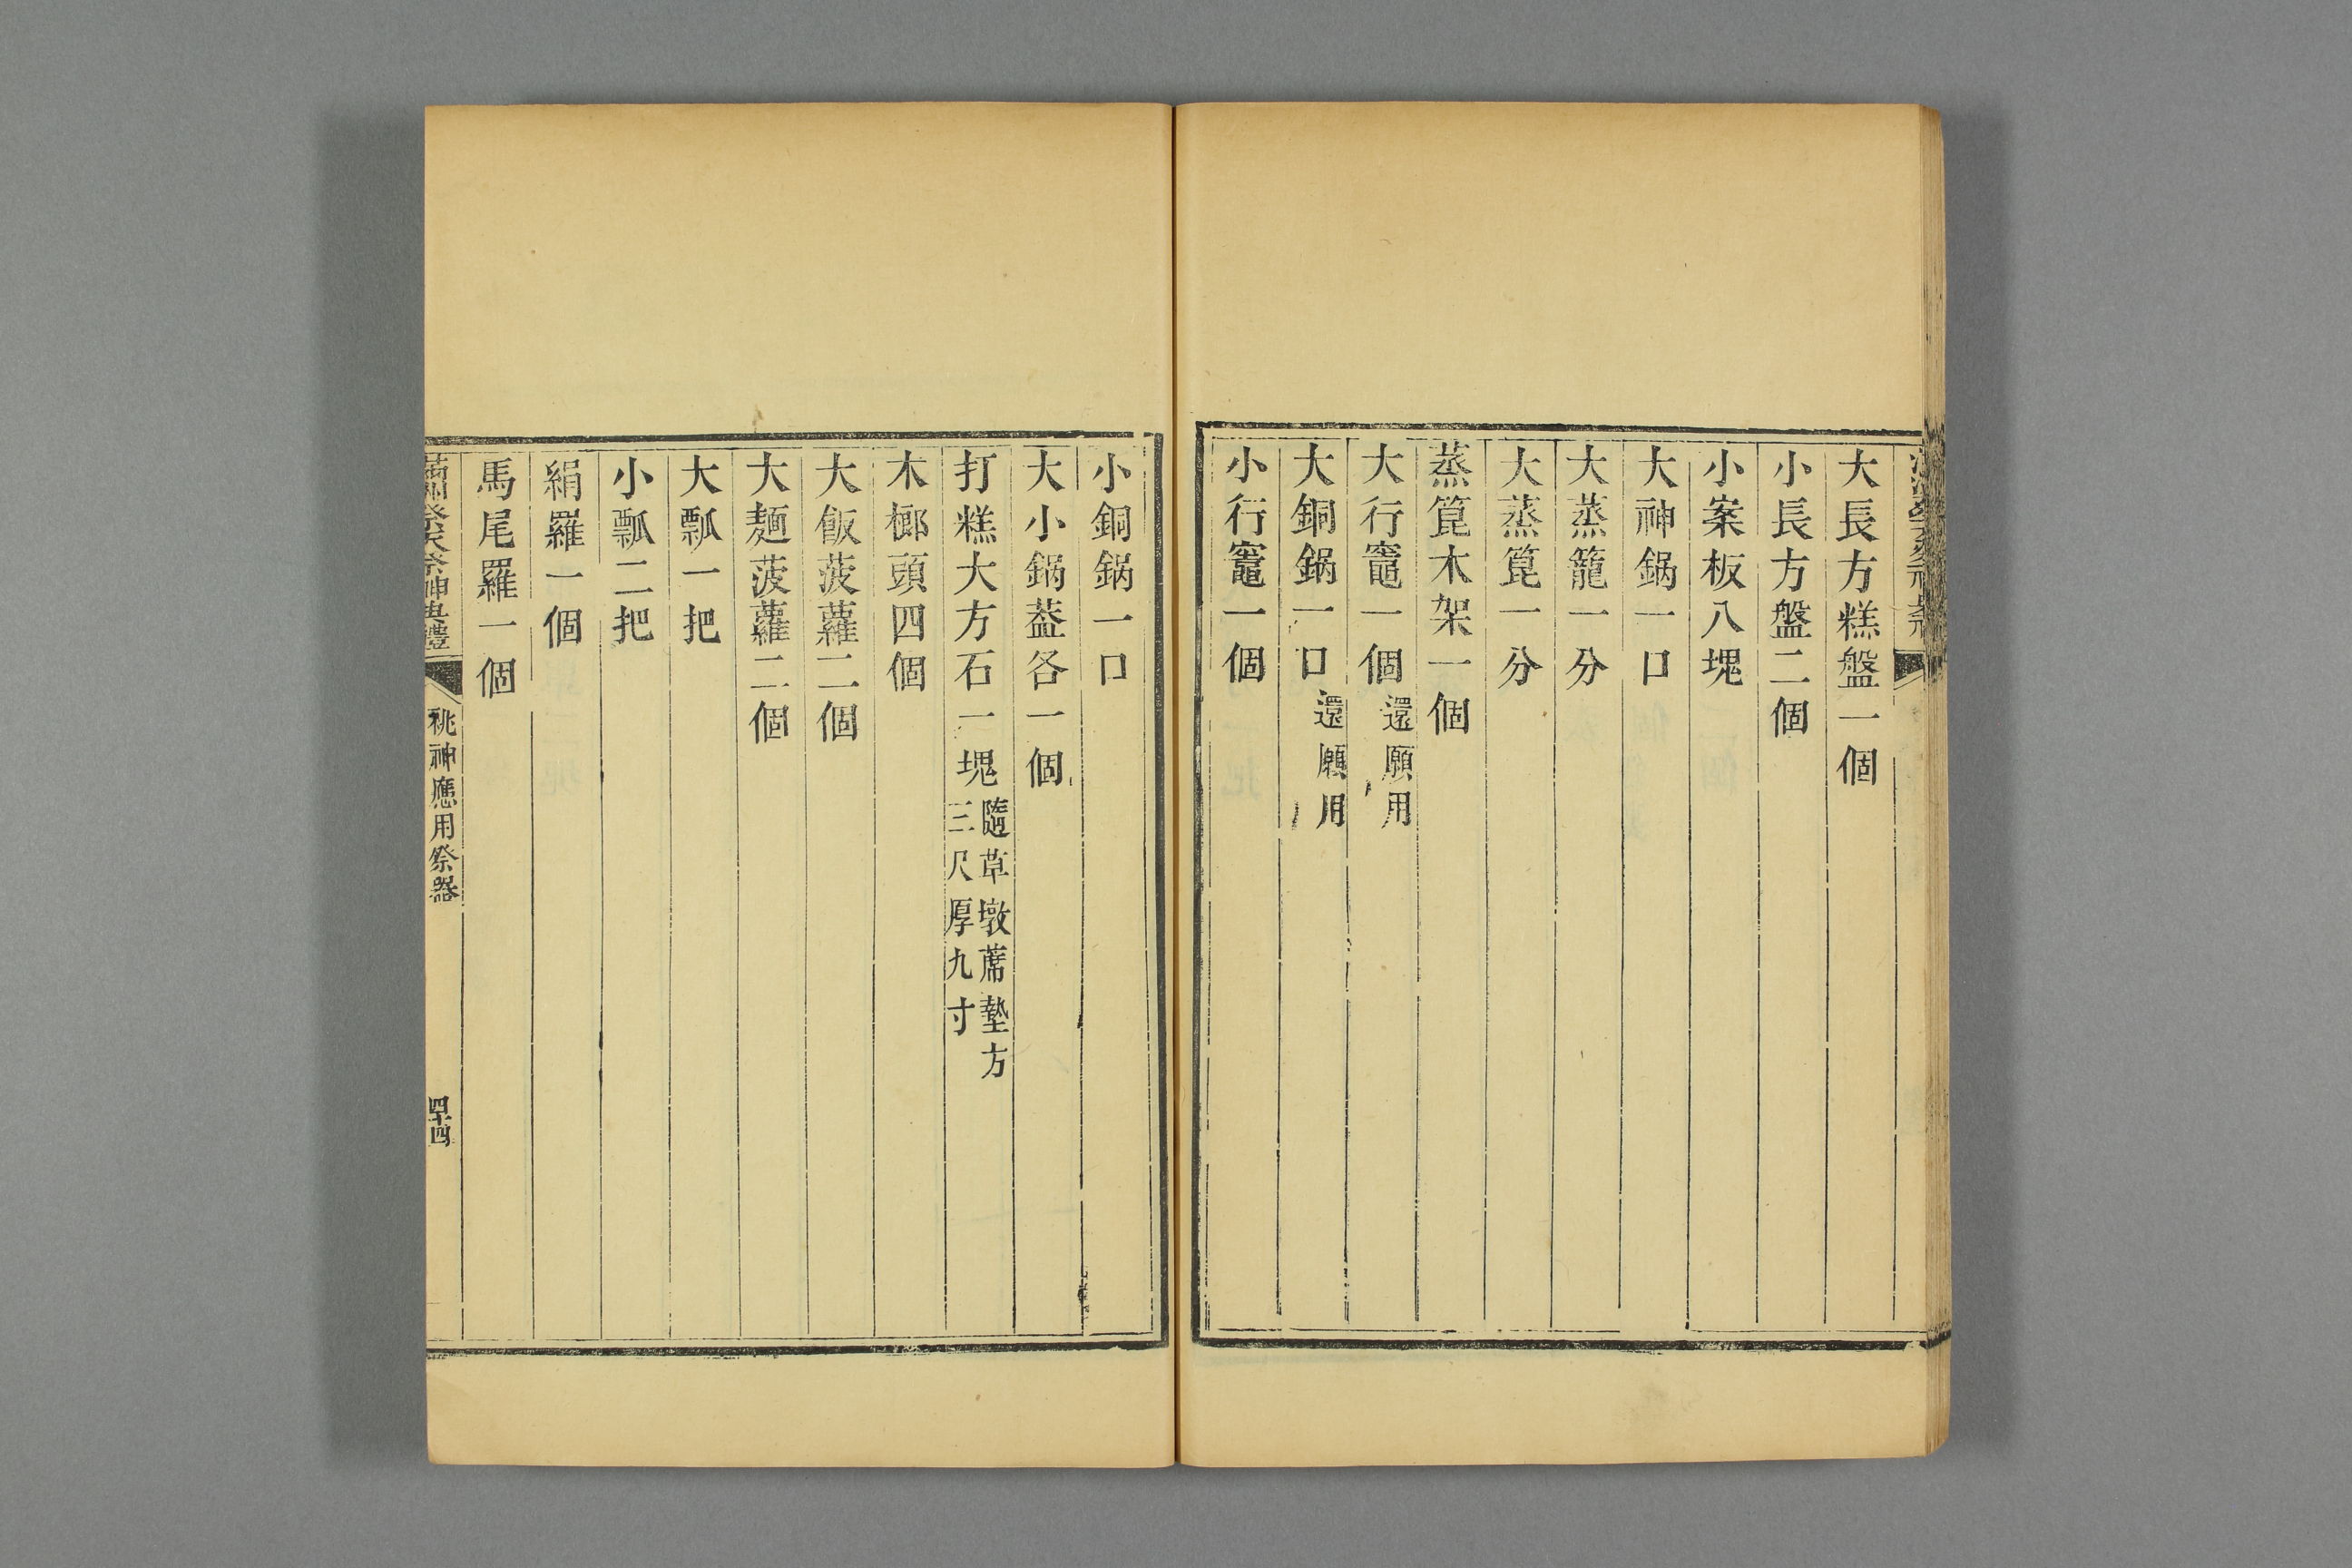 大長方糕盤一個
小長方盤二個
小案板八塊
大神鍋一口
大蒸籠一分
大蒸篦一分
蒸篦木架一個
大行竈一個還願用
大銅鍋一口還願用
小行竈一個
小銅鍋一口
大小鍋葢各一個
打糕大方石一塊隨草墩蓆墊方
三尺厚九寸
木榔頭四個
大飯菠蘿二個
大麵菠蘿二個
大瓢一把
小瓢二把
絹羅一個
馬尾羅一個
滿洲祭天祭神典禮
祧神應用祭器
四十四